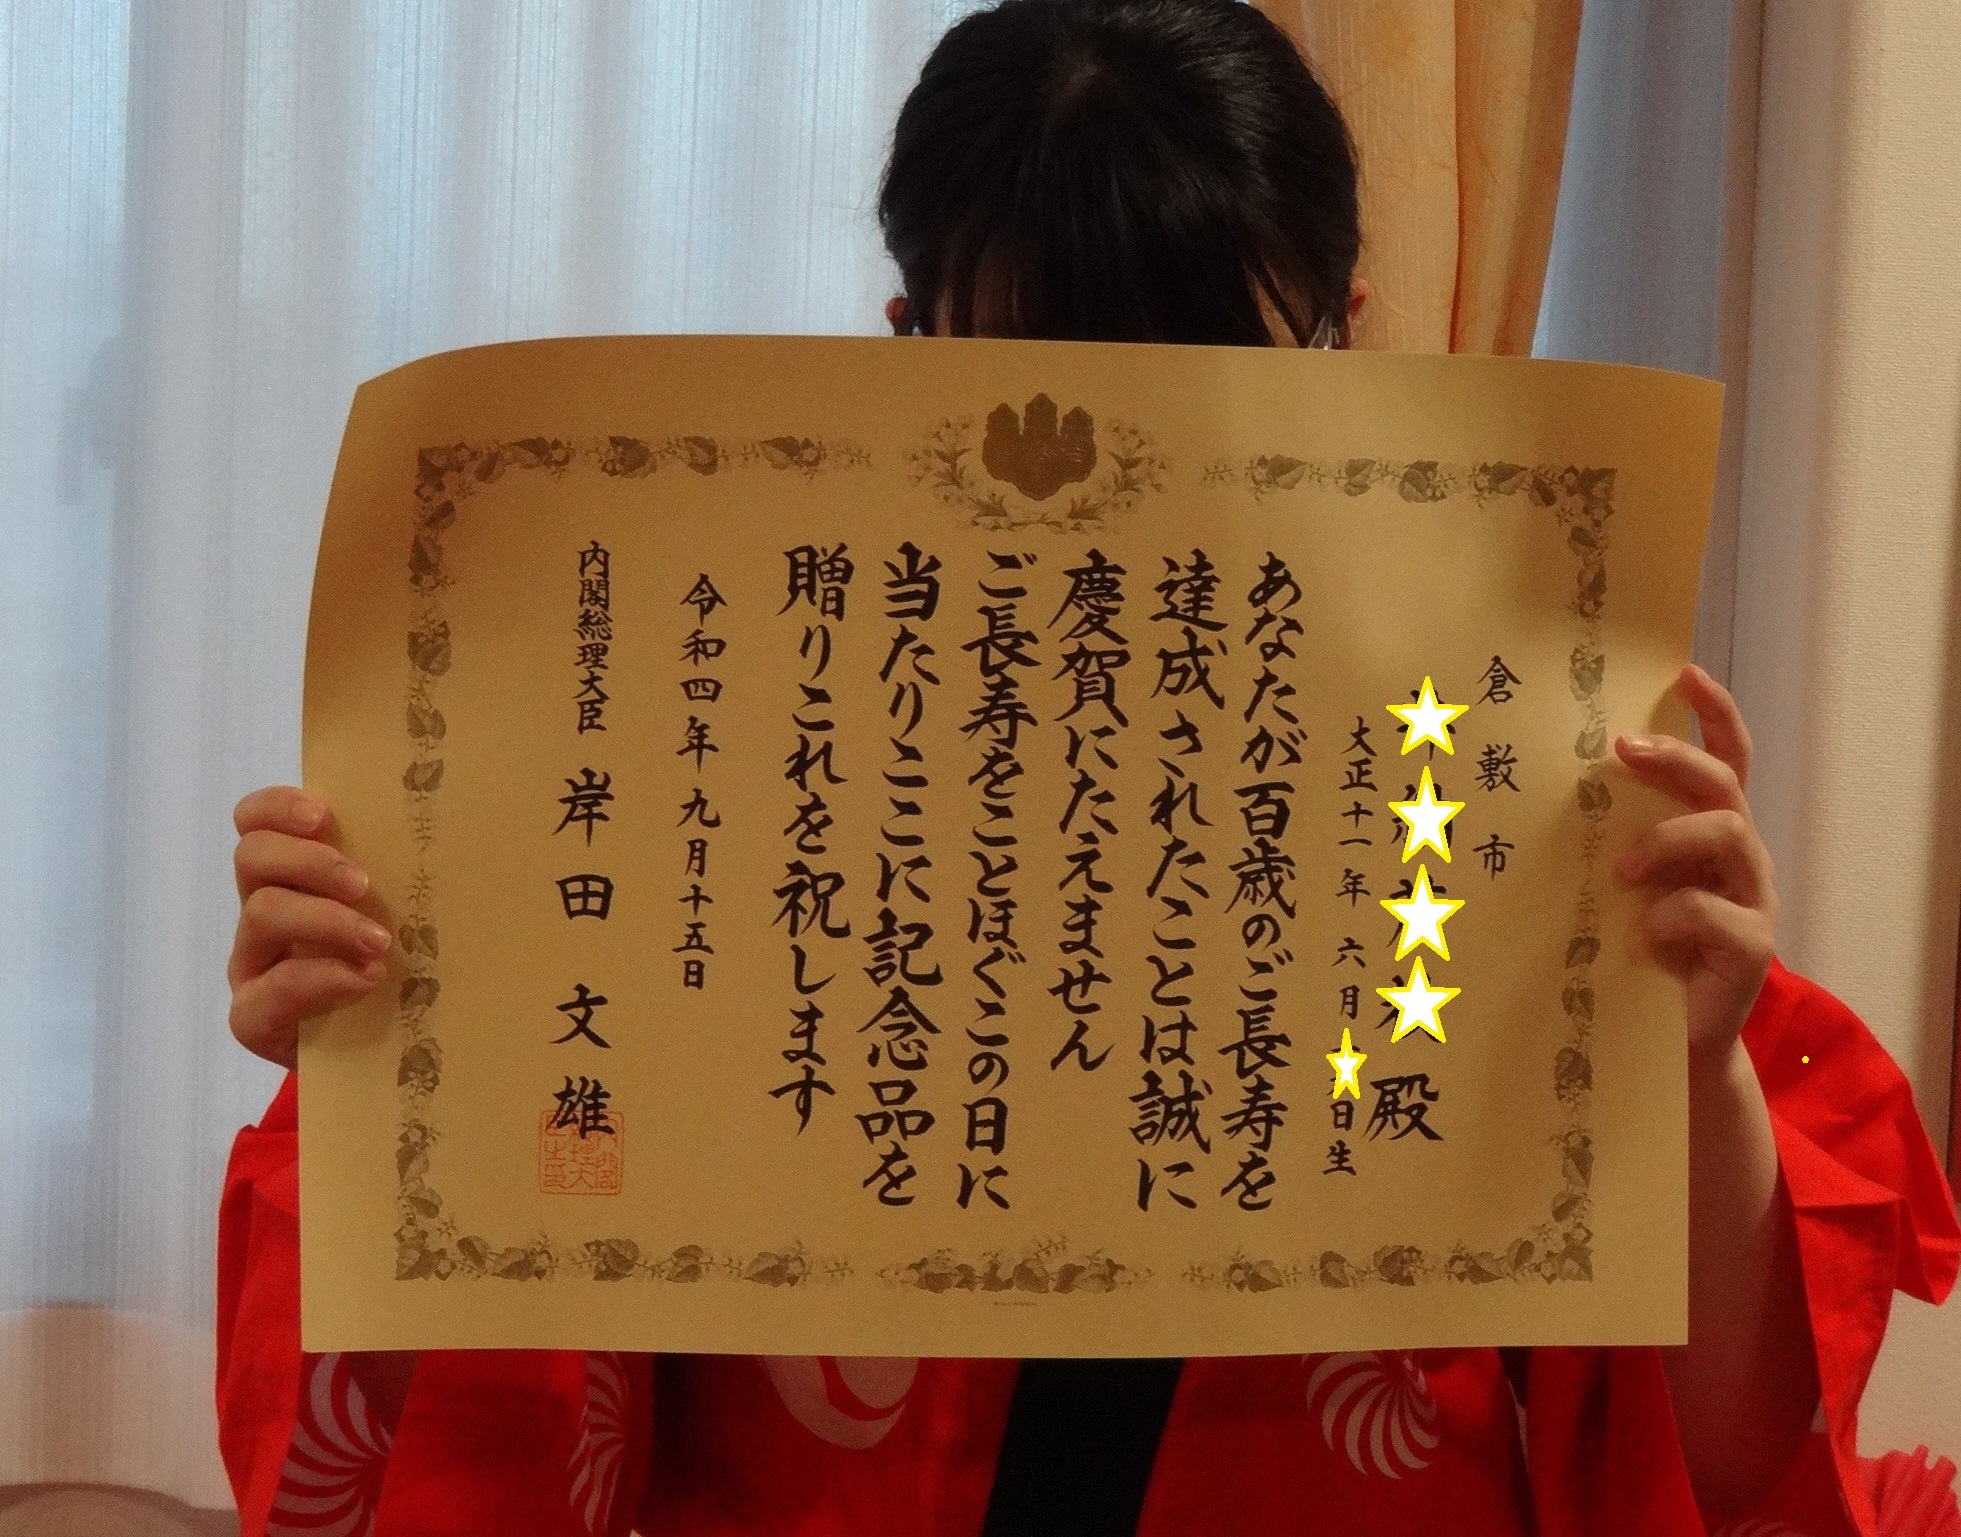 倉敷市
殿
大正十一年六月
日生
あなたが百歳のご長寿を
達成されたことは誠に
慶賀にたえません
ご長寿をことほぐこの日に
当たりここに記念品を
贈りこれを祝します
令和四年九月十五日
内閣総理大臣 岸田文雄